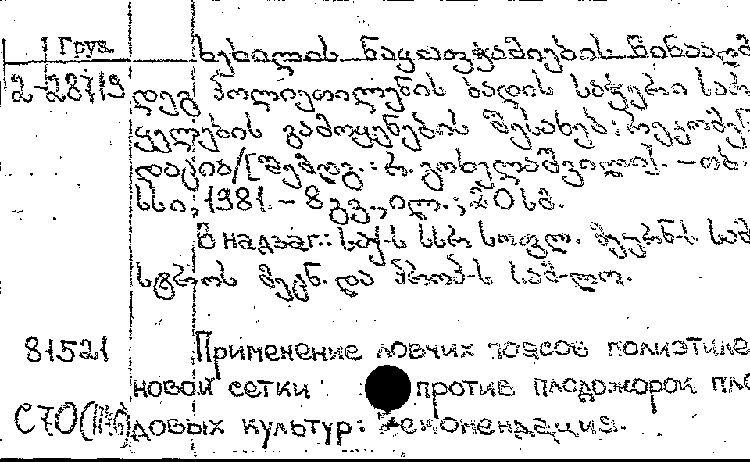 Груз.
ხეხილის ნაყოფჭამიების წინააღმ
2-28719 დეგ პოლიეთილენის ბადის საჭერი სარ
ყელების გამოყენების შესახებ: რეკომენ
დაცია/[შემდგ.: რ. გოხელაშვილი]. – თბ.
სსი, 1981. – 8 გვ., ილ.; 20 სმ.
В надзаг.: საქ-ს სსრ სოფლ. მეურნ-ს სამ
სტროს მეცნ. და პროპ-ს სამ-ლო.
81521 Применение ловчих поясов полиэтиле
новой сетки против плодожорок пло
С70(1176) довых культур: Рекомендация.